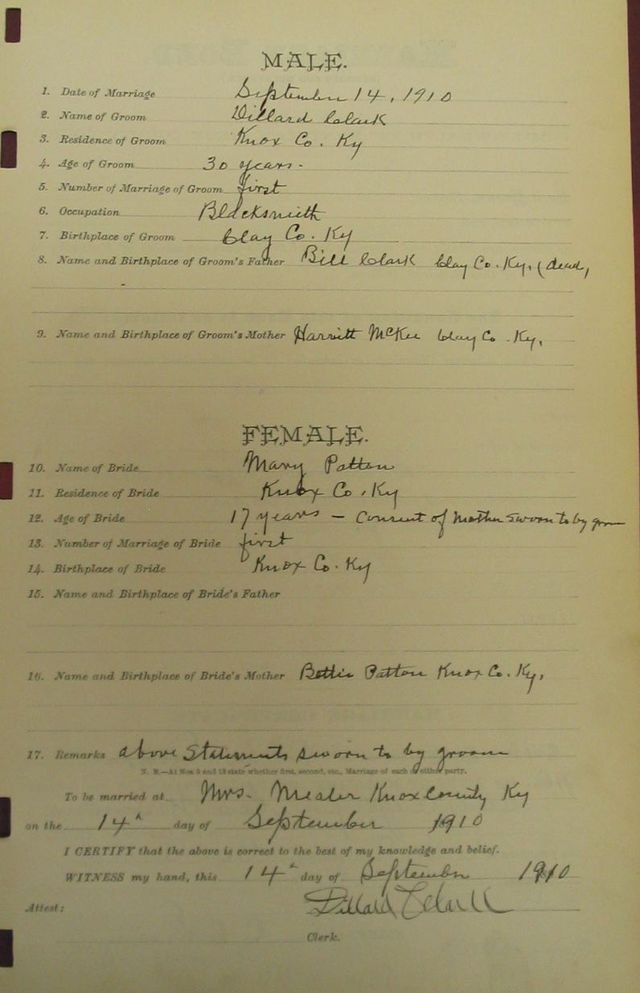 MALE.
1. Date of Marriage September 14, 1910
2. Name of Groom Dillard Clark
3. Residence of Groom Knox Co. Ky
4. Age of Groom 30 years.
5. Number of Marriage of Groom first
6. Occupation Blacksmith
7. Birthplace of Groom Clay Co. Ky
8. Name and Birthplace of Groom's Father Bill Clark Clay Co. Ky. (dead,
9. Name and Birthplace of Groom's Mother Harriett McKee Clay Co. Ky.
FEMALE.
10. Name of Bride Mary Patton
11. Residence of Bride Knox Co. Ky
12. Age of Bride 17 years – Consent of Mother sworn to by groom
13. Number of Marriage of Bride first
14. Birthplace of Bride Knox Co. Ky
15. Name and Birthplace of Bride's Father
16. Name and Birthplace of Bride's Mother Bettie Patton Knox Co. Ky.
17. Remarks above Statements sworn to by groom
N. B.—At Nos 5 and 13 state whether first, second, etc., Marriage of each or either party.
To be married at Mrs. Knox County Ky
on the 14" day of September 1910
I CERTIFY that the above is correct to the best of my knowledge and belief.
WITNESS my hand, this 14" day of September 1910
Dillard Clark
Attest:
Clerk.